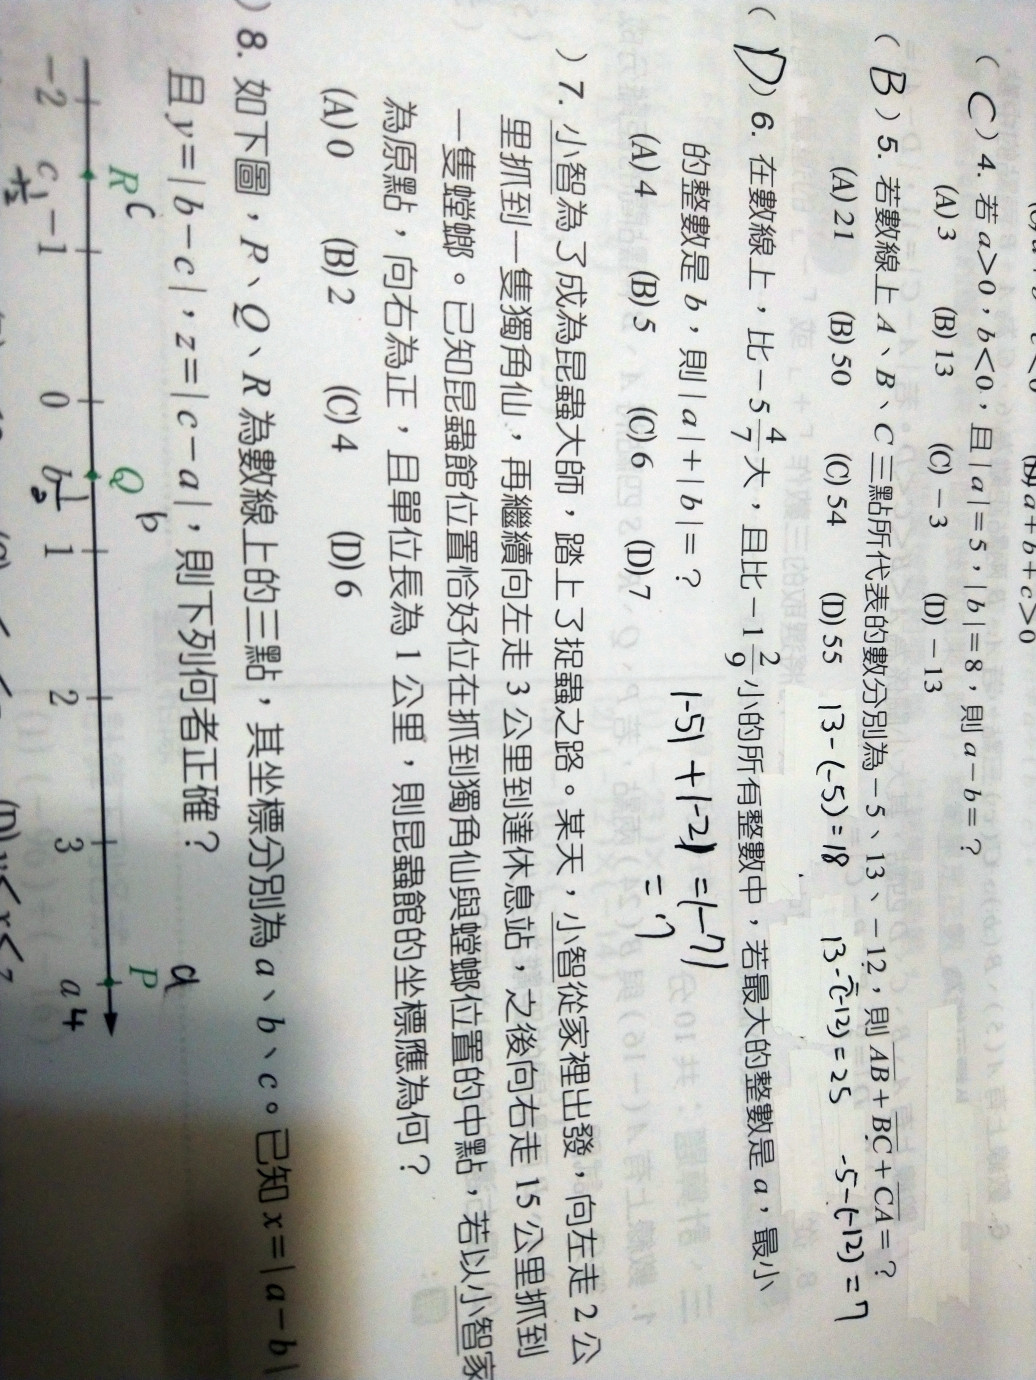 a+b+c>0
( C ) 4. 若 a>0，b<0，且 |a|=5，|b|=8，則 a-b=？
(A) 3 (B) 13 (C) -3 (D) -13
( B ) 5. 若數線上 A、B、C 三點所代表的數分別為 -5、13、-12，則 AB+BC+CA=？
(A) 21 (B) 50 (C) 54 (D) 55 13-(-5)=18 13-(-12)=25 -5-(-12)=7
( D ) 6. 在數線上，比 -5 4/7 大，且比 -1 2/9 小的所有整數中，若最大的整數是 a，最小
的整數是 b，則 |a|+|b|=？ |-5|+|-2|=|-7|
(A) 4 (B) 5 (C) 6 (D) 7 =7
) 7. 小智為了成為昆蟲大師，踏上了捉蟲之路。某天，小智從家裡出發，向左走 2 公
里抓到一隻獨角仙，再繼續向左走 3 公里到達休息站，之後向右走 15 公里抓到
一隻螳螂。已知昆蟲館位置恰好位在抓到獨角仙與螳螂位置的中點，若以小智家
為原點，向右為正，且單位長為 1 公里，則昆蟲館的坐標應為何？
(A) 0 (B) 2 (C) 4 (D) 6
) 8. 如下圖，P、Q、R 為數線上的三點，其坐標分別為 a、b、c。已知 x=|a-b|
且 y=|b-c|，z=|c-a|，則下列何者正確？
R C Q b P a
-2 c -1 0 b 1/2 1 2 3 a 4
(D) y<x<z